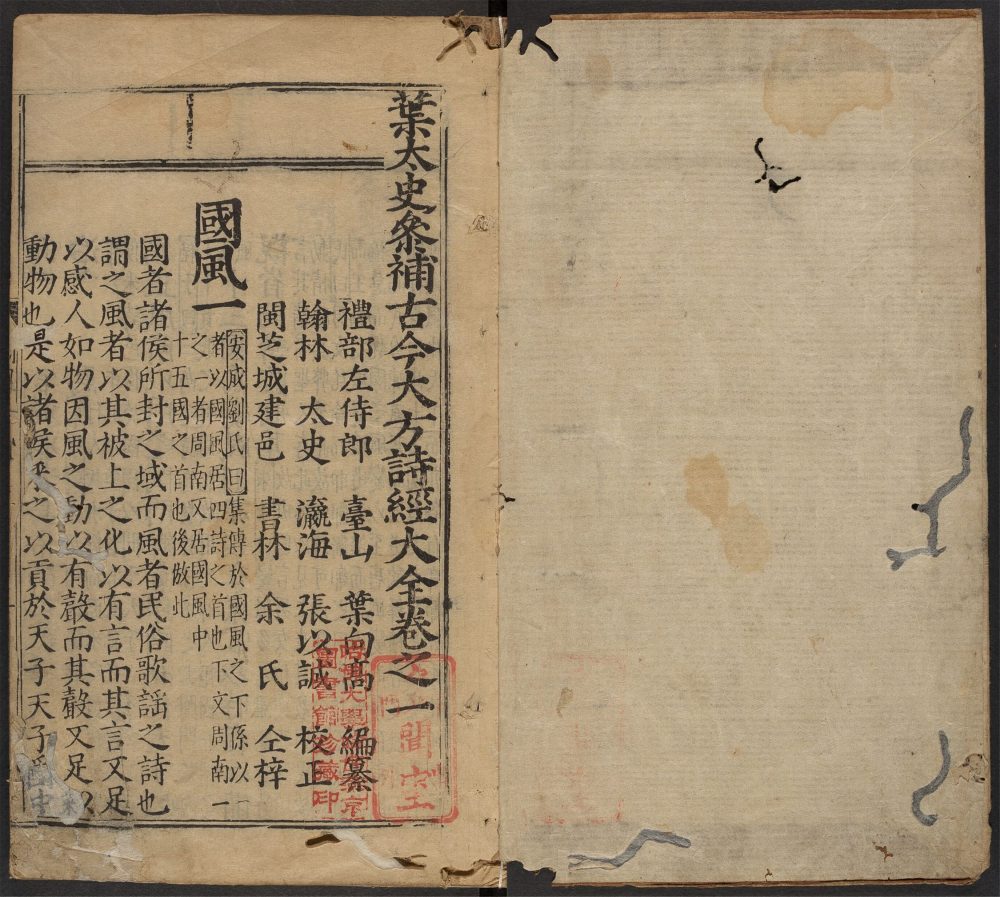 葉太史叅補古今大方詩經大全卷之一
禮部左侍郎 臺山 葉向高 編纂
翰林 太史 瀛海 張以誠 校正
閩芝城建邑 書林 余氏 仝梓
國風一
安成劉氏曰集傳於國風之下係以一
者以國風居四詩之首也下文周南一
之一者周南又居國風中
十五國之首也後倣此
國者諸侯所封之域而風者民俗歌謡之詩也
謂之風者以其被上之化以有言而其言又足
以感人如物因風之動以有聲而其聲又足以
動物也是以諸侯采之以貢於天子天子
哈佛大學
圖書館珍藏印